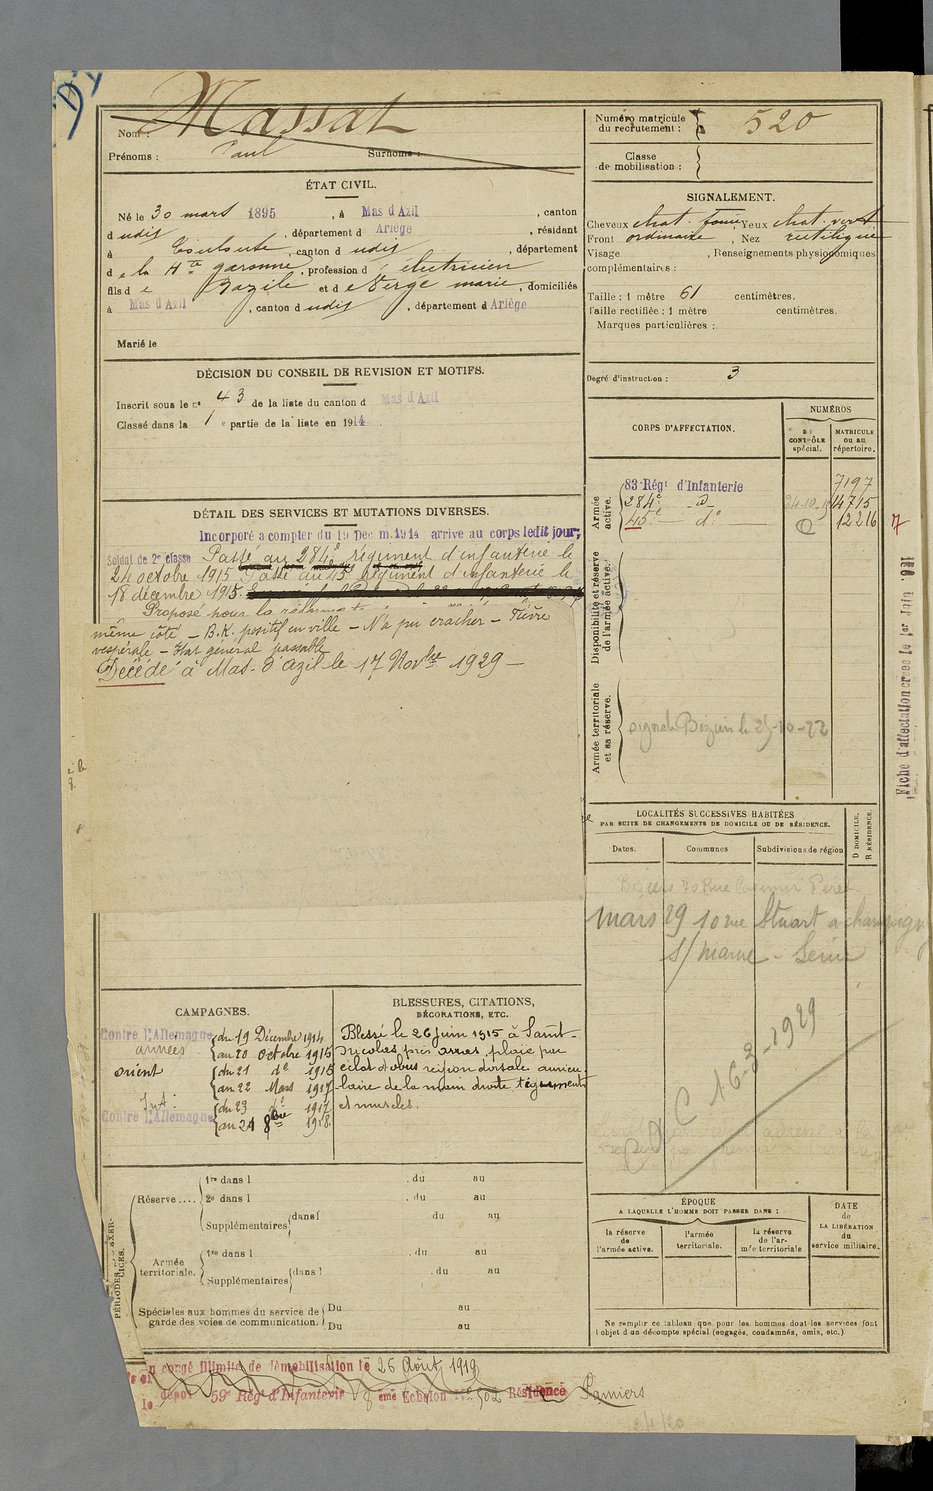 Nom : Massat
Prénoms : Paul Surnoms :
ÉTAT CIVIL.
Né le 30 mars 1895, à Mas d'Azil, canton
d udit, département d Ariège, résidant
à Toulouse, canton d udit, département
d e la Hte garonne, profession d' électricien
fils d e Bazile et d e Vergé marie, domiciliés
à Mas d'Azil, canton d udit, département d Ariège
Marié le
DÉCISION DU CONSEIL DE REVISION ET MOTIFS.
Inscrit sous le n° 43 de la liste du canton d Mas d'Azil
Classé dans la 1 e partie de la liste en 1914
DÉTAIL DES SERVICES ET MUTATIONS DIVERSES.
Incorporé a compter du 19 Dec m.1914 arrive au corps ledit jour;
Soldat de 2e classe Passé au 284e régiment d'infanterie le
24 octobre 1915 Passé au 45e Régiment d'infanterie le
18 décembre 1915.
Proposé pour la
même côté – B.K. positif en ville – N'a pu cracher – Fièvre
vespérale – Etat général passable
Décédé à Mas-d'Azil le 17 Novbre 1929 –
CAMPAGNES.
Contre l'Allemagne du 19 Décembre 1914
armées au 20 octobre 1915
orient du 21 do 1915
au 22 Mars 1917
Int: du 23 do 1917
Contre l'Allemagne au 24 8bre 1918
BLESSURES, CITATIONS,
DÉCORATIONS, ETC.
Blessé le 26 juin 1915 à Saint-
Nicolas près arras, plaie par
éclat d'obus région dorsale auricu-
laire de la main droite téguments
et muscles.
PÉRIODES
Réserve.... 1re dans l , du au
2e dans l , du au
Supplémentaires dans l du au
Armée territoriale. 1re dans l , du au
Supplémentaires dans l , du au
Spéciales aux hommes du service de Du au
garde des voies de communication. Du au
n congé illimité de démobilisation le 26 Août 1919
dépôt 59e Régt d'Infanterie 8 eme Echelon no 502 Résidence Pamiers
2/1/20
Numéro matricule
du recrutement : 520
Classe
de mobilisation :
SIGNALEMENT.
Cheveux chat. foncé, Yeux chat. verd
Front ordinaire, Nez rectiligne
Visage , Renseignements physionomiques
complémentaires :
Taille : 1 mètre 61 centimètres.
Taille rectifiée : 1 mètre centimètres.
Marques particulières :
Degré d'instruction : 3
CORPS D'AFFECTATION.
NUMÉROS
au CONTRÔLE spécial.
MATRICULE ou au répertoire.
Armée active.
83 Régt d'Infanterie 7197
284e do 24-10-15 14715
45e do 12216
Disponibilité et réserve de l'armée active.
Armée territoriale et sa réserve.
signalé Béziers le 25-10-22
Fiche d'affectation créée le 1er Juin
LOCALITÉS SUCCESSIVES HABITÉES
PAR SUITE DE CHANGEMENTS DE DOMICILE OU DE RÉSIDENCE.
Dates. Communes Subdivisions de région D DOMICILE. R RÉSIDENCE.
Béziers 70 Rue Casimir Périer
mars 29 10 rue Stuart a champigny
s/ marne - Seine
C 16-3-1929
ÉPOQUE
A LAQUELLE L'HOMME DOIT PASSER DANS :
la réserve de l'armée active.
l'armée territoriale.
la réserve de l'armée territoriale
DATE de LA LIBÉRATION du service militaire.
Ne remplir ce tableau que pour les hommes dont les services font
l'objet d'un décompte spécial (engagés, condamnés, omis, etc.)